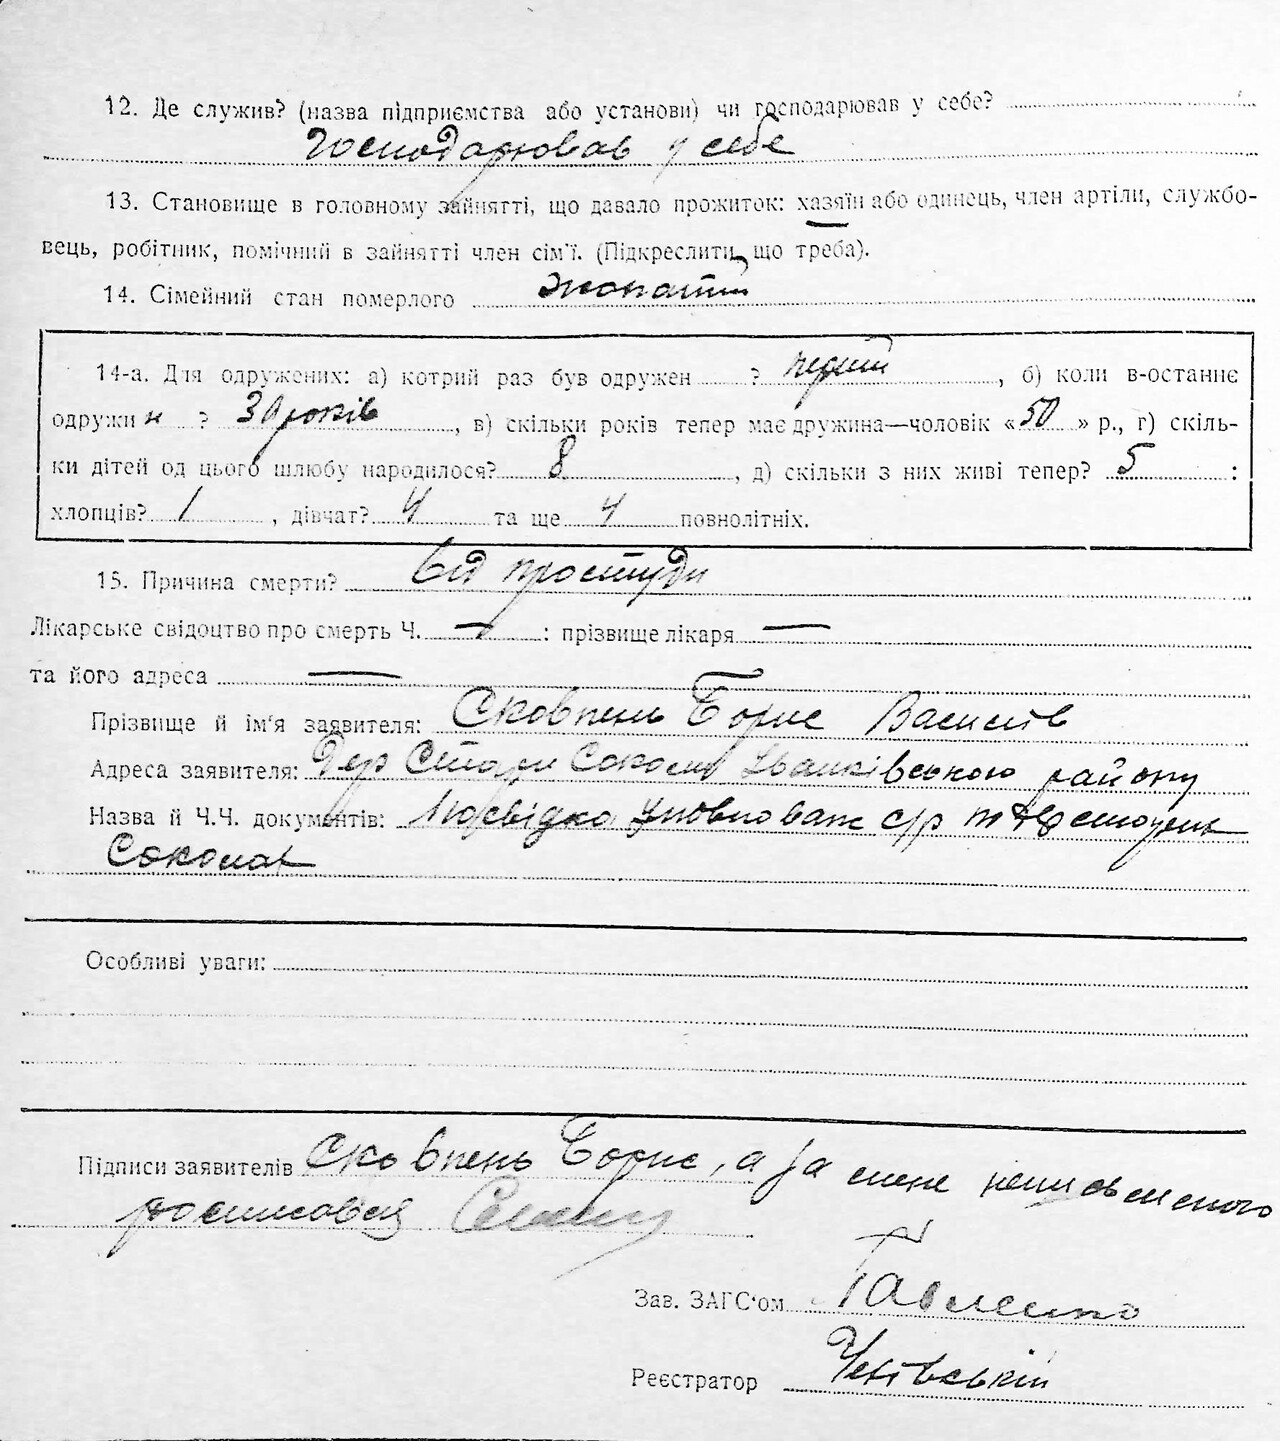 12. Де служив? (назва підприємства або установи) чи господарював у себе?
Господарював у себе
13. Становище в головному зайнятті, що давало прожиток: хазяїн або одинець, член артіли, службо-
вець, робітник, помічний в зайнятті член сім'ї. (Підкреслити, що треба).
14. Сімейний стан померлого жонатий
14-а. Для одружених: а) котрий раз був одружен ? перший, б) коли в-останнє
одружи н ? 30 років, в) скільки років тепер має дружина—чоловік «50» р., г) скіль-
ки дітей од цього шлюбу народилося? 8, д) скільки з них живі тепер? 5 :
хлопців? 1, дівчат? 4 та ще 4 повнолітніх.
15. Причина смерти? Від простуди
Лікарське свідоцтво про смерть Ч. — : прізвище лікаря —
та його адреса —
Прізвище й ім'я заявителя: Сковпень Борис
Адреса заявителя: Дер Стари Соколи Іванківського району
Назва й Ч.Ч. документів: Посвідка уповноваж с/р
Соколах
Особливі уваги:
Підписи заявителів Сковпень Борис, а за мене неписьменого
росписовся
Зав. ЗАГС'ом Павленко
Реєстратор